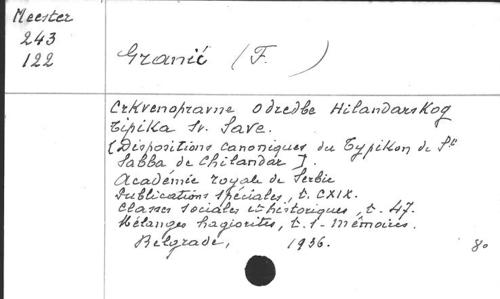 Meester
243
122
Granić (F. )
Crkvenopravne odredbe Hilandarskog
Tipika Sv. Save.
[Dispositions canoniques du Typikon de St
Sabba de Chilandar].
Académie royale de Serbie
Publications spéciales, t. CXIX.
Classes sociales et historiques, t. 47.
Mélanges hagiorites, t. 1 - Mémoires.
Belgrade, 1936. 80